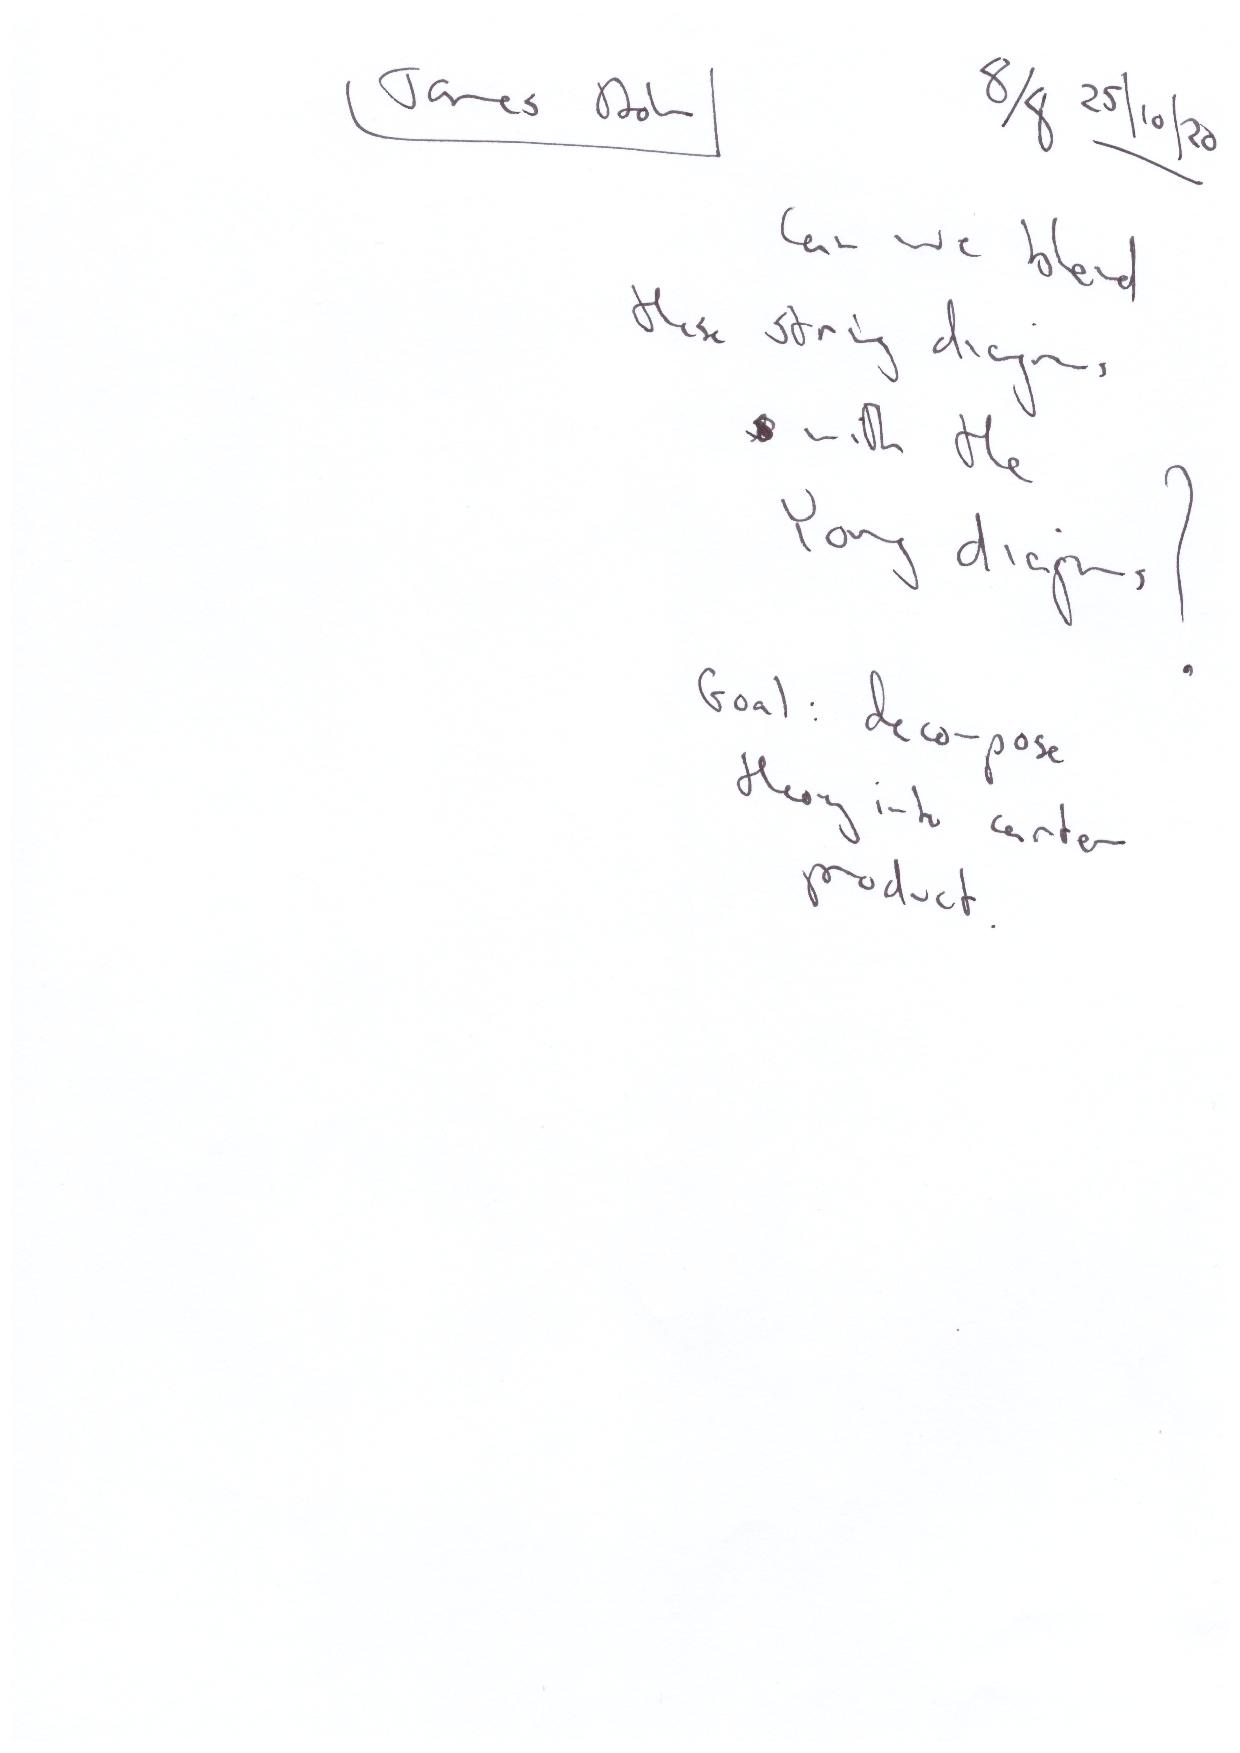 James
8/8 25/10/20
Can we blend
these string diagrams
with the
Young diagrams?
Goal: decompose
theory into
product.